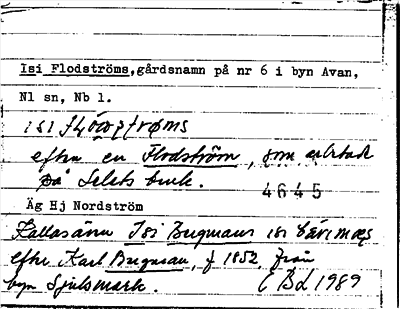 Isi Flodströms, gårdsnamn på nr 6 i byn Avan,
Nl sn, Nb l.
efter en Flodström, som arbetade
på Selets bruk.
4645
Äg Hj Nordström
Kallas även Isi Bergmans isi
efter Karl Bergman, f 1852, från
byn Sjulsmark. E B L 1989